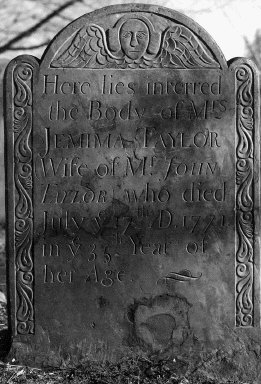 Here lies interred
the Body of Mrs
JEMIMA TAYLOR
Wife of Mr JOHN
TAYLOR who died
July ye 17th D. 1771
in ye 35th Year of
her Age.